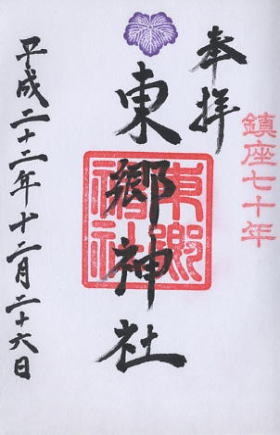 奉拝
鎮座七十年
東郷神社
東郷神社
平成二十二年十二月二十六日